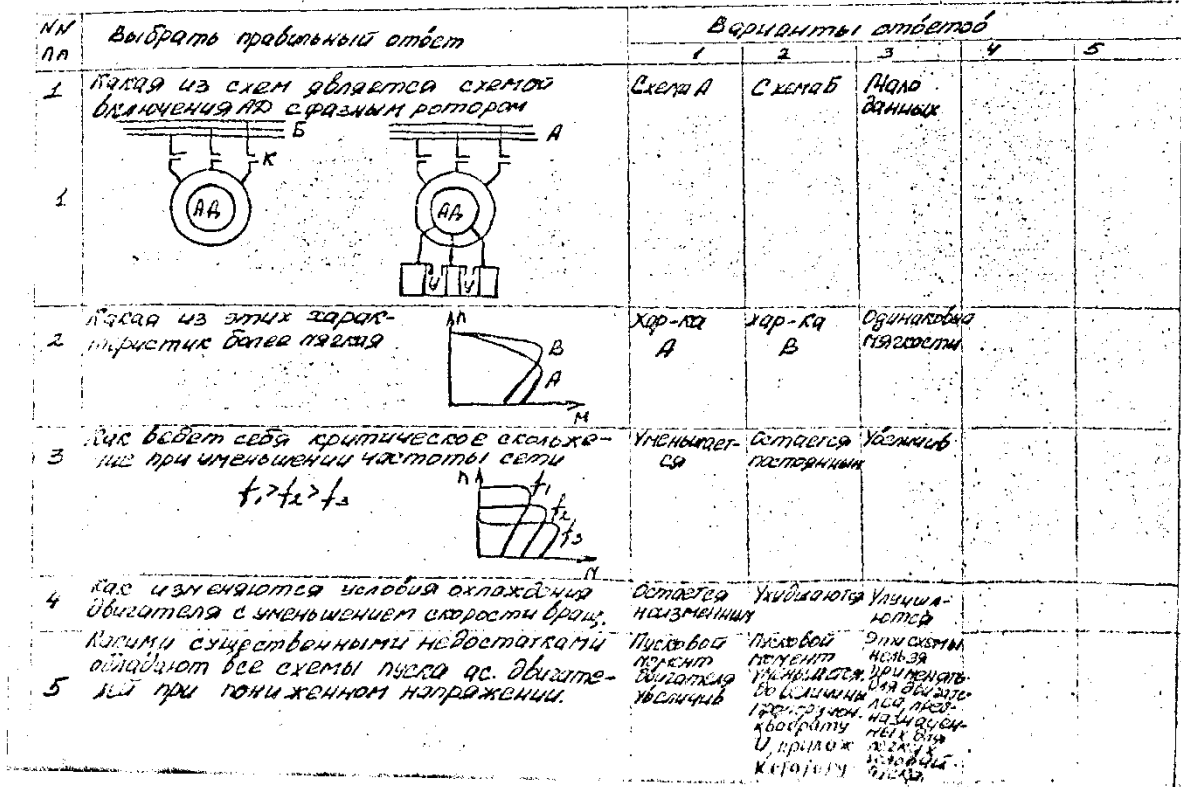 NN пп
Выбрать правильный ответ
Варианты ответов
1 2 3 4 5
1 Какая из схем является схемой
включения АД с фазным ротором
Схема А
Схема Б
Мало
данных
Б
А
К
1
АД
АД
2 Какая из этих харак-
теристик более мягкая
n
В
А
М
Хар-ка
А
хар-ка
В
Одинаковая
мягкости
3 Как ведет себя критическое скольже-
ние при уменьшении частоты сети
f₁>f₂>f₃
n
f₁
f₂
f₃
Уменьшает-
ся
Остается
постоянным
Увеличив
4 Как изменяются условия охлаждения
двигателя с уменьшением скорости вращ.
Остается
неизменным
Ухудшаются
Улучша-
ются
5 Какими существенными недостатками
обладают все схемы пуска ас. двигате-
лей при пониженном напряжении.
Пусковой
момент
двигателя
увеличив
Пусковой
момент
уменьшается
до величины
квадрату
U, прилож
Эти схемы
нельзя
применять
для двигате-
лей, пред-
назначен-
ных для
легких
условий
пуска